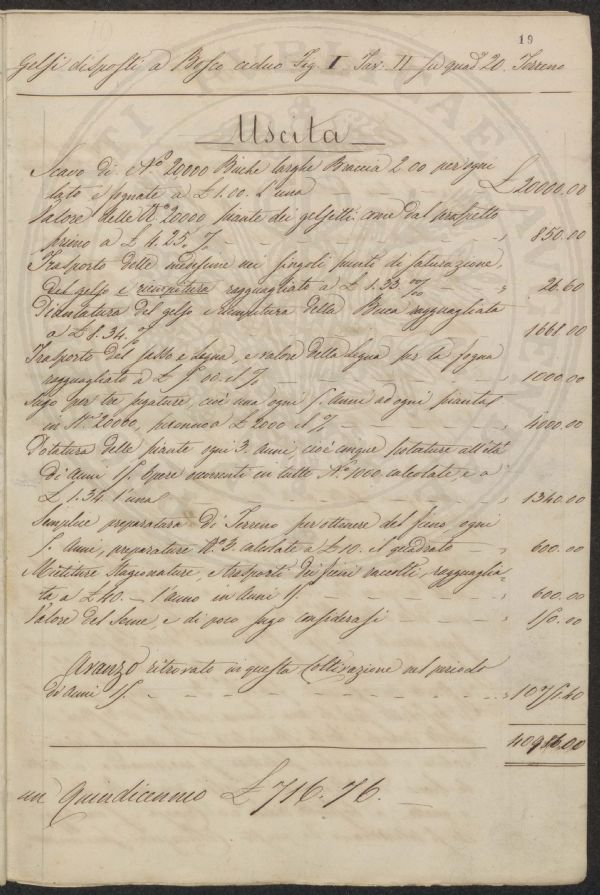 19
Gelsi disposti a Bosco ceduo Fig. I Tav. II su quad.i 20 Terreno
Uscita
Scavo di N.o 20000 Buche larghe Braccia 2.00 per ogni
lato e fognate a £ 1.00 l'una £ 20000.00
Valore delle N.o 20000 piante dei gelsetti come dal prospetto
primo a £ 4.25 % 850.00
Trasporto delle medesime nei singoli punti di
del gelso e riempitura ragguagliato a £ 1.33 26.60
del gelso e riempitura della Buca ragguagliata
a £ 8.34 % 1661.00
Trasporto del sasso e legna, e valore della legna per la fogna
ragguagliato a £ 5.00 il % 1000.00
Sugo per tre sugature, cioè una ogni 5. anni ad ogni pianta
in N.o 20000, a £ 2000 il % 4000.00
Potatura delle piante ogni 3. anni, cioè cinque potature all'età
di anni 15. Opere occorrenti in tutte N.o 1000 calcolate a
£ 1.34 l'una 1340.00
Semplice preparatura di Terreno per ottenere del fieno ogni
5. anni, preparature N.o 3. calcolate a £ 10. il quadrato 600.00
Mietiture Stagionature, e trasporti dei fieni raccolti, ragguaglia-
ta a £ 40.— l'anno in anni 15 600.00
Valore del Seme, e di poco sugo considerasi 150.00
Avanzo ritrovato in questa Coltivazione nel periodo
di anni 15. 10758.40
40986.00
un Quindicennio £ 716.76.